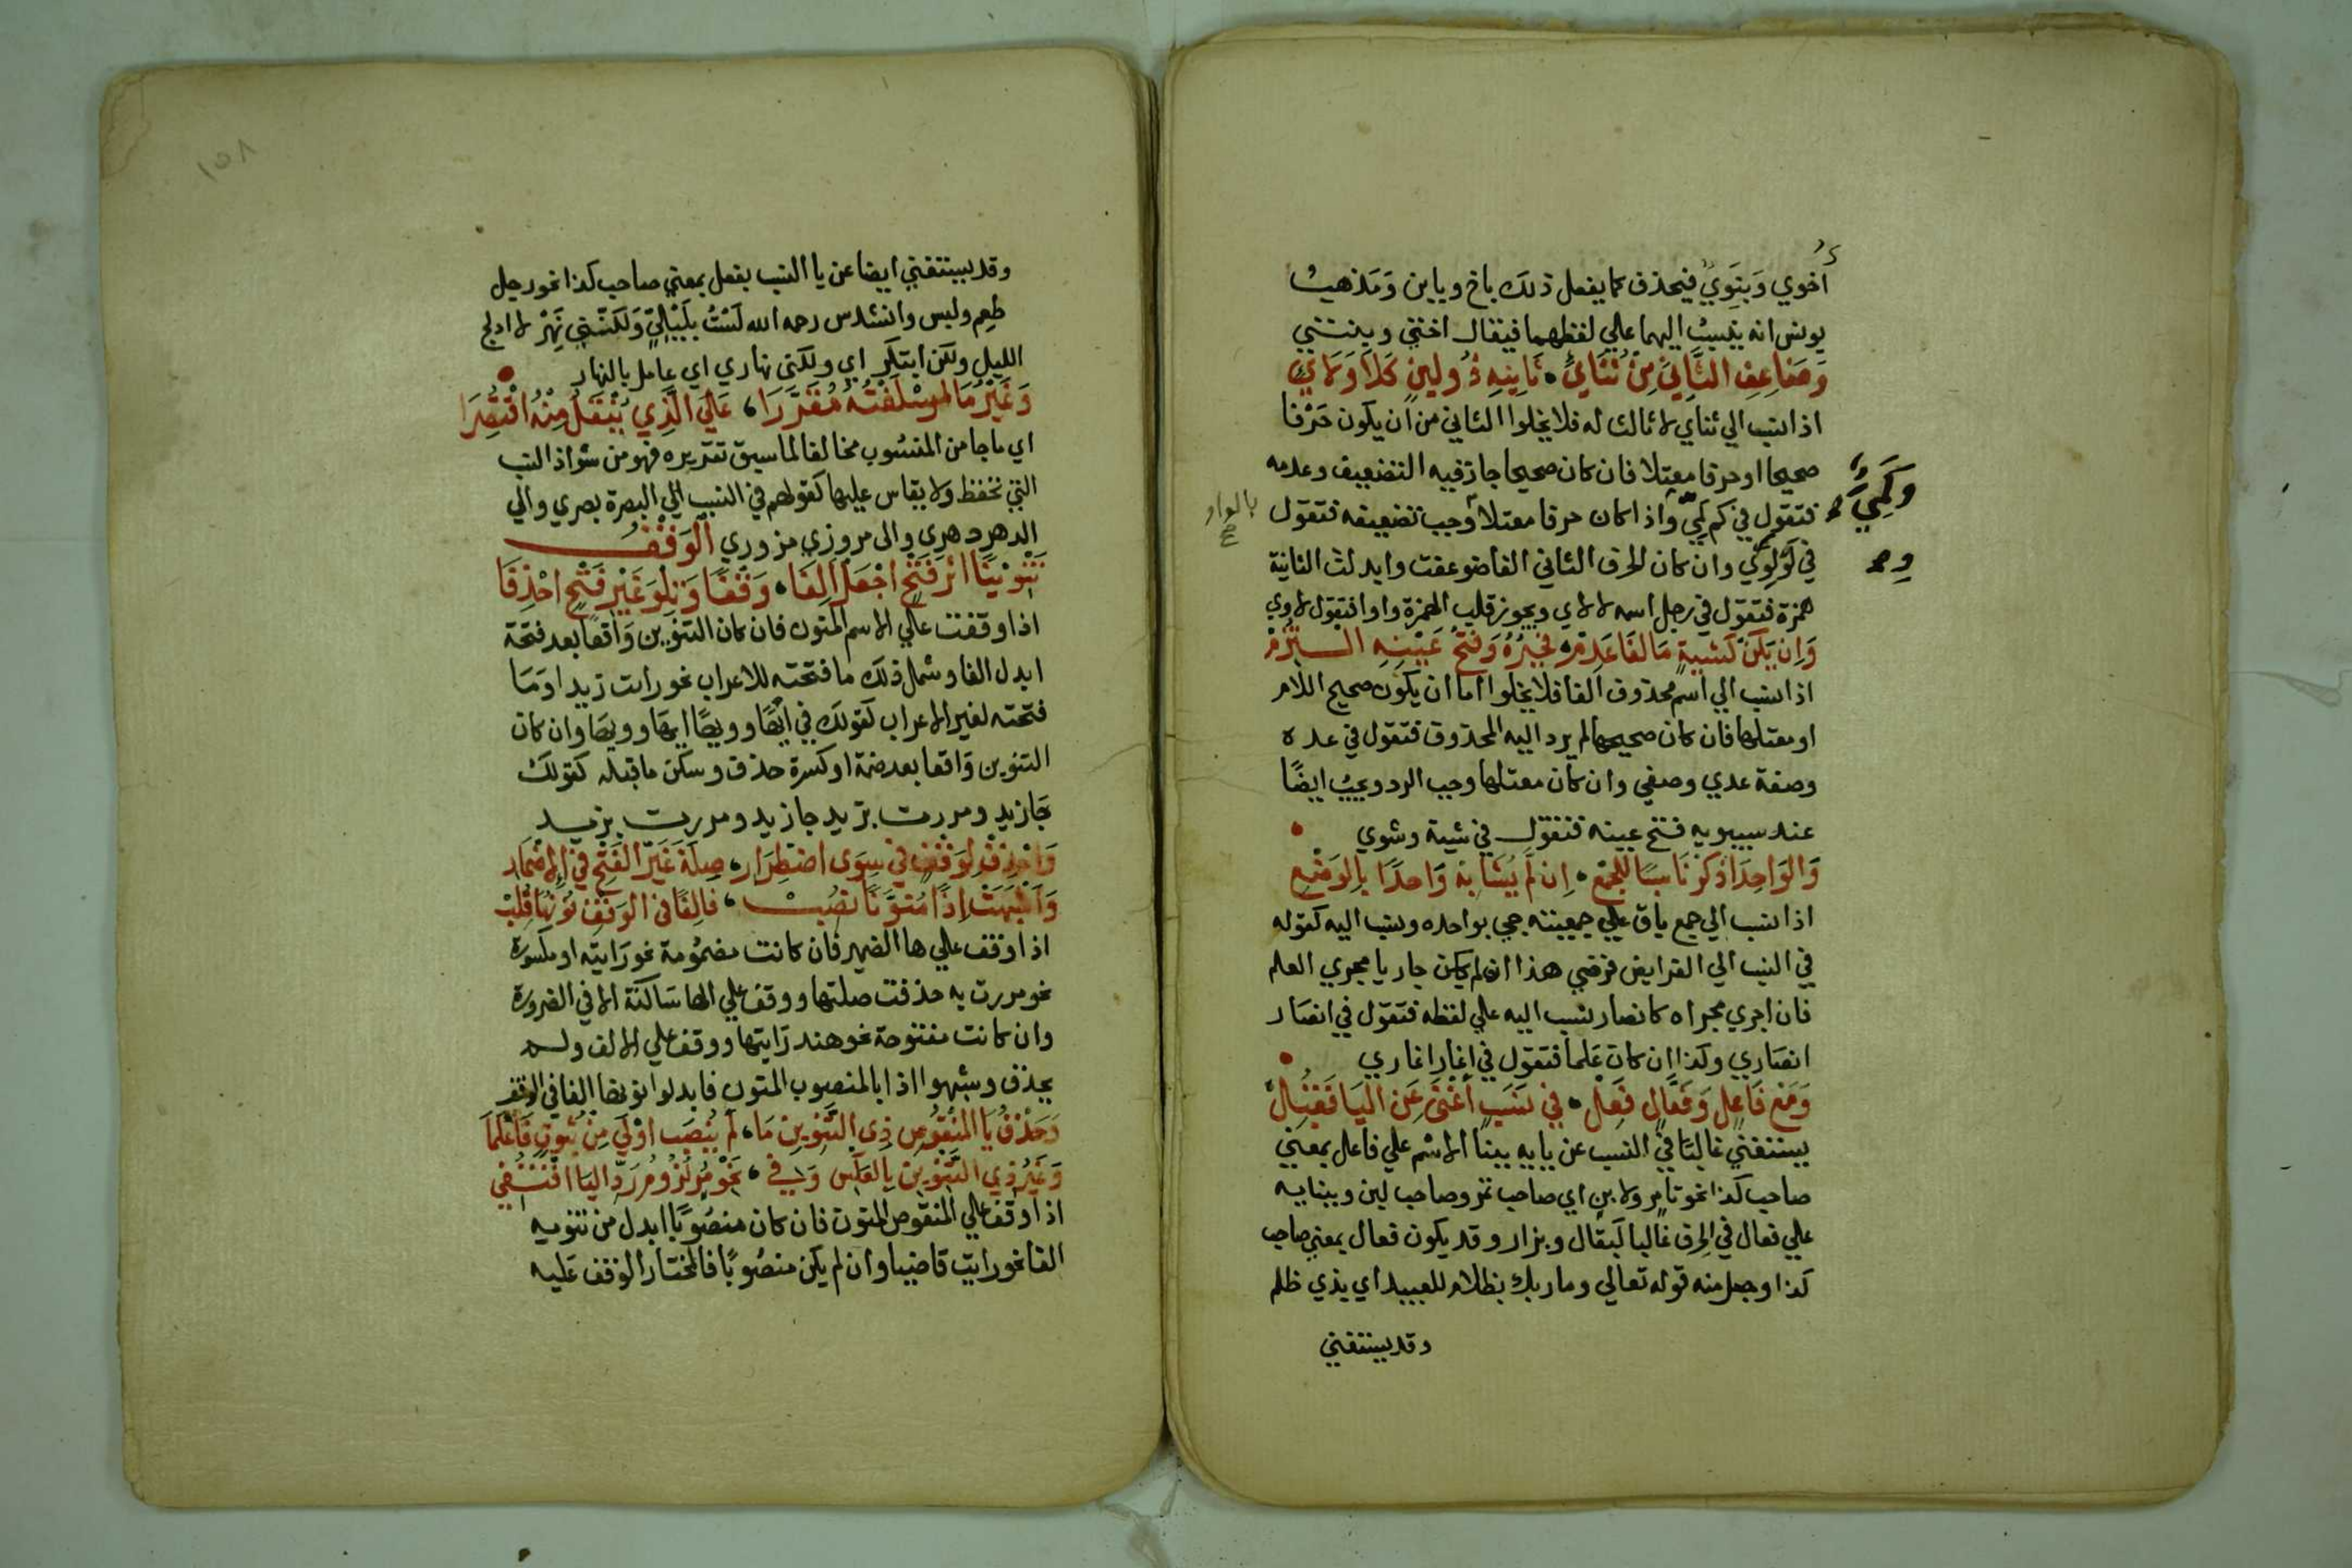 أخوي وَبنَوِيّ فيحذف كما يفعل ذلك باخ وباين وَمَذهبُ
يونس انه ينسبُ اليهما علي لفظهما فيقال اختي وبنتي
وَضَاعِفِ الثَّانِيَ مِنْ ثُنَائِيِّ • ثَانِيهِ ذُو لِينٍ كَلاَ وَلاَئِيّ
اذا نسب الي ثناي لا ثالث له فلا يخلوا الثاني من ان يكون حَرْفا
صحيحا او حرفا معتلا فان كان صحيحا جاز فيه التضعيف وعدمه
فتقول في كم كَمِيّ واذا كان حرفا معتلا وجب تضعيفه فتقول
وكَمِّيّ
بالواو
في لَوْ لوّي وان كان الحرف الثاني الفا ضوعفت وابدلت الثانية
همزة فتقول في رجل اسمه لا لاي ويجوز قلب الهمزة واوا فتقول لاوي
وَاِن يَكُنْ كَشِيَةٍ مَا الفَا عَدِمْ • فجَبْرُهُ وَفَتْحُ عَيْنِهِ الـتزُمْ
اذا نسب الي اسم محذوف الفا فلا يخلوا اما ان يكون صحيح اللام
او معتلها فان كان صحيحها لم يرد اليه المحذوف فتقول في عدة
وصفة عدي وصفي وان كان معتلها وجب الرد ويجبُ ايضًا
عند سيبويه فتح عينه فتقول في شية وشوي •
وَالوَاحِدَ اذْكرْ نَاسبًا للجَمْعِ • اِن لَّمْ يُشَابِهْ وَاحدًا بِالوَضْعِ
اذا نسب الي جمع باق علي جمعيته جي بواحده ونسب اليه كقوله
في النسب الي الفرايض فرضي هذا ان لم يكن جاريا مجري العلم
فان اجري مجراه كانصار نسب اليه علي لفظه فتقول في انصَار
انصَاري وكذا ان كان عَلما فتقول في انمار انماري •
وَمَعَ فَاعِلٍ وَفَعَّالٍ فَعِلْ • فِي نَسَبٍ أَغْنَى عَنِ اليَا فَقُبِلْ
يستغني غالبًا في النسب عن يايه ببنا الاسْم علي فاعل بمعني
صاحب كذا نحو تامر ولابن اي صاحب تمر وصاحب لبن وببنايه
علي فعال في الحرف غالبا كبقال وبزار وقد يكون فعال بمعني صاحب
كذا وجعل منه قوله تعالي وما ربك بظلام للعبيد اي بذي ظلم
وقد يستغني
١٥٨
وقد يستغني ايضا عن يا النسب بفعل بمعني صاحب كذا نحو رجل
طعِم ولبس وانشد س رحمه الله لَسْتُ بلَيْليّ وَلكنّني نَهِرْ لا ادلج
الليل ولكن ابتكر اي ولكني نهاري اي عامل بالنهار •
وَغَيْرُ مَا اسْلَفْتُهُ مُقَرَّرَا، عَلَى الَّذِي يُنْقَلُ مِنْهُ اقْتُصِرَا
اي ما جا من المنسُوب مخالفا لما سبق تقريره فهو من شواذ النسب
التي تحفظ ولا يقاس عليها كقولهم في النسب الي البصرة بصري والي
الدهر دهري والى مرو زي مزوري الْوَقْفُ
تَنْوِينًا اثْرَ فَتْحٍ اجْعَلْ اَلِفَا • وَقْفًا وَتِلْوَ غَيْرِ فَتْحٍ احْذِفَا
اذا وقفت علي الاسم المنون فان كان التنوين وَاقعًا بعد فتحة
ابدل الفا وشمل ذلك ما فتحته للاعراب نحو رايت زيدا وَمَا
فتحته لغير الاعراب كقولك في ايهًا وويهًا ايها وويها وان كان
التنوين وَاقعا بعد ضمة او كسرة حذف وسكن ما قبله كقولك
جَا زيد ومررت بزيد جا زيد ومررت بزيد
وَاحْذِفْ لِوَقْفٍ فِي سِوَى اضْطِرَارِ، صِلَةَ غَيْرِ الفَتْحِ فِي الاِضْمَارِ
وَاَشْبَهَتْ اِذًا مُنَوَّنًا نُصِبْ، فَاَلِفًا فِي الوَقْفِ نُونُهَا قُلِبْ
اذا وقف علي ها الضمير فان كانت مضمُومة نحو رَايته او مكسورة
نحو مررت به حذفت صلتها ووقف علي الها سَاكنة الا في الضرورة
وان كانت مفتوحة نحو هند رَايتها ووقف علي الالف ولم
يحذف وشبهوا اذا بالمنصوب المنون فابدلوا نونها الفا في الوقف
وَحَذْفُ يَا المَنْقُوصِ ذِي التَّنْوِينِ مَا، لَمْ يُنْصَبَ اوْلَى مِنْ ثُبُوتٍ فَاعْلَمَا
وَغَيْرُ ذِي التَّنْوِينِ بِالعَكْسِ وَفِي، نَحْوِ مُرٍ لُزُومُ رَدِّ اليَا اقْتُفِي
اذا وقف علي المنقوص المنون فان كان منصُوبًا ابدل من تنوينه
الفا نحو رايت قاضيا وان لم يكن منصُوبًا فالمختار الوقف عَليه